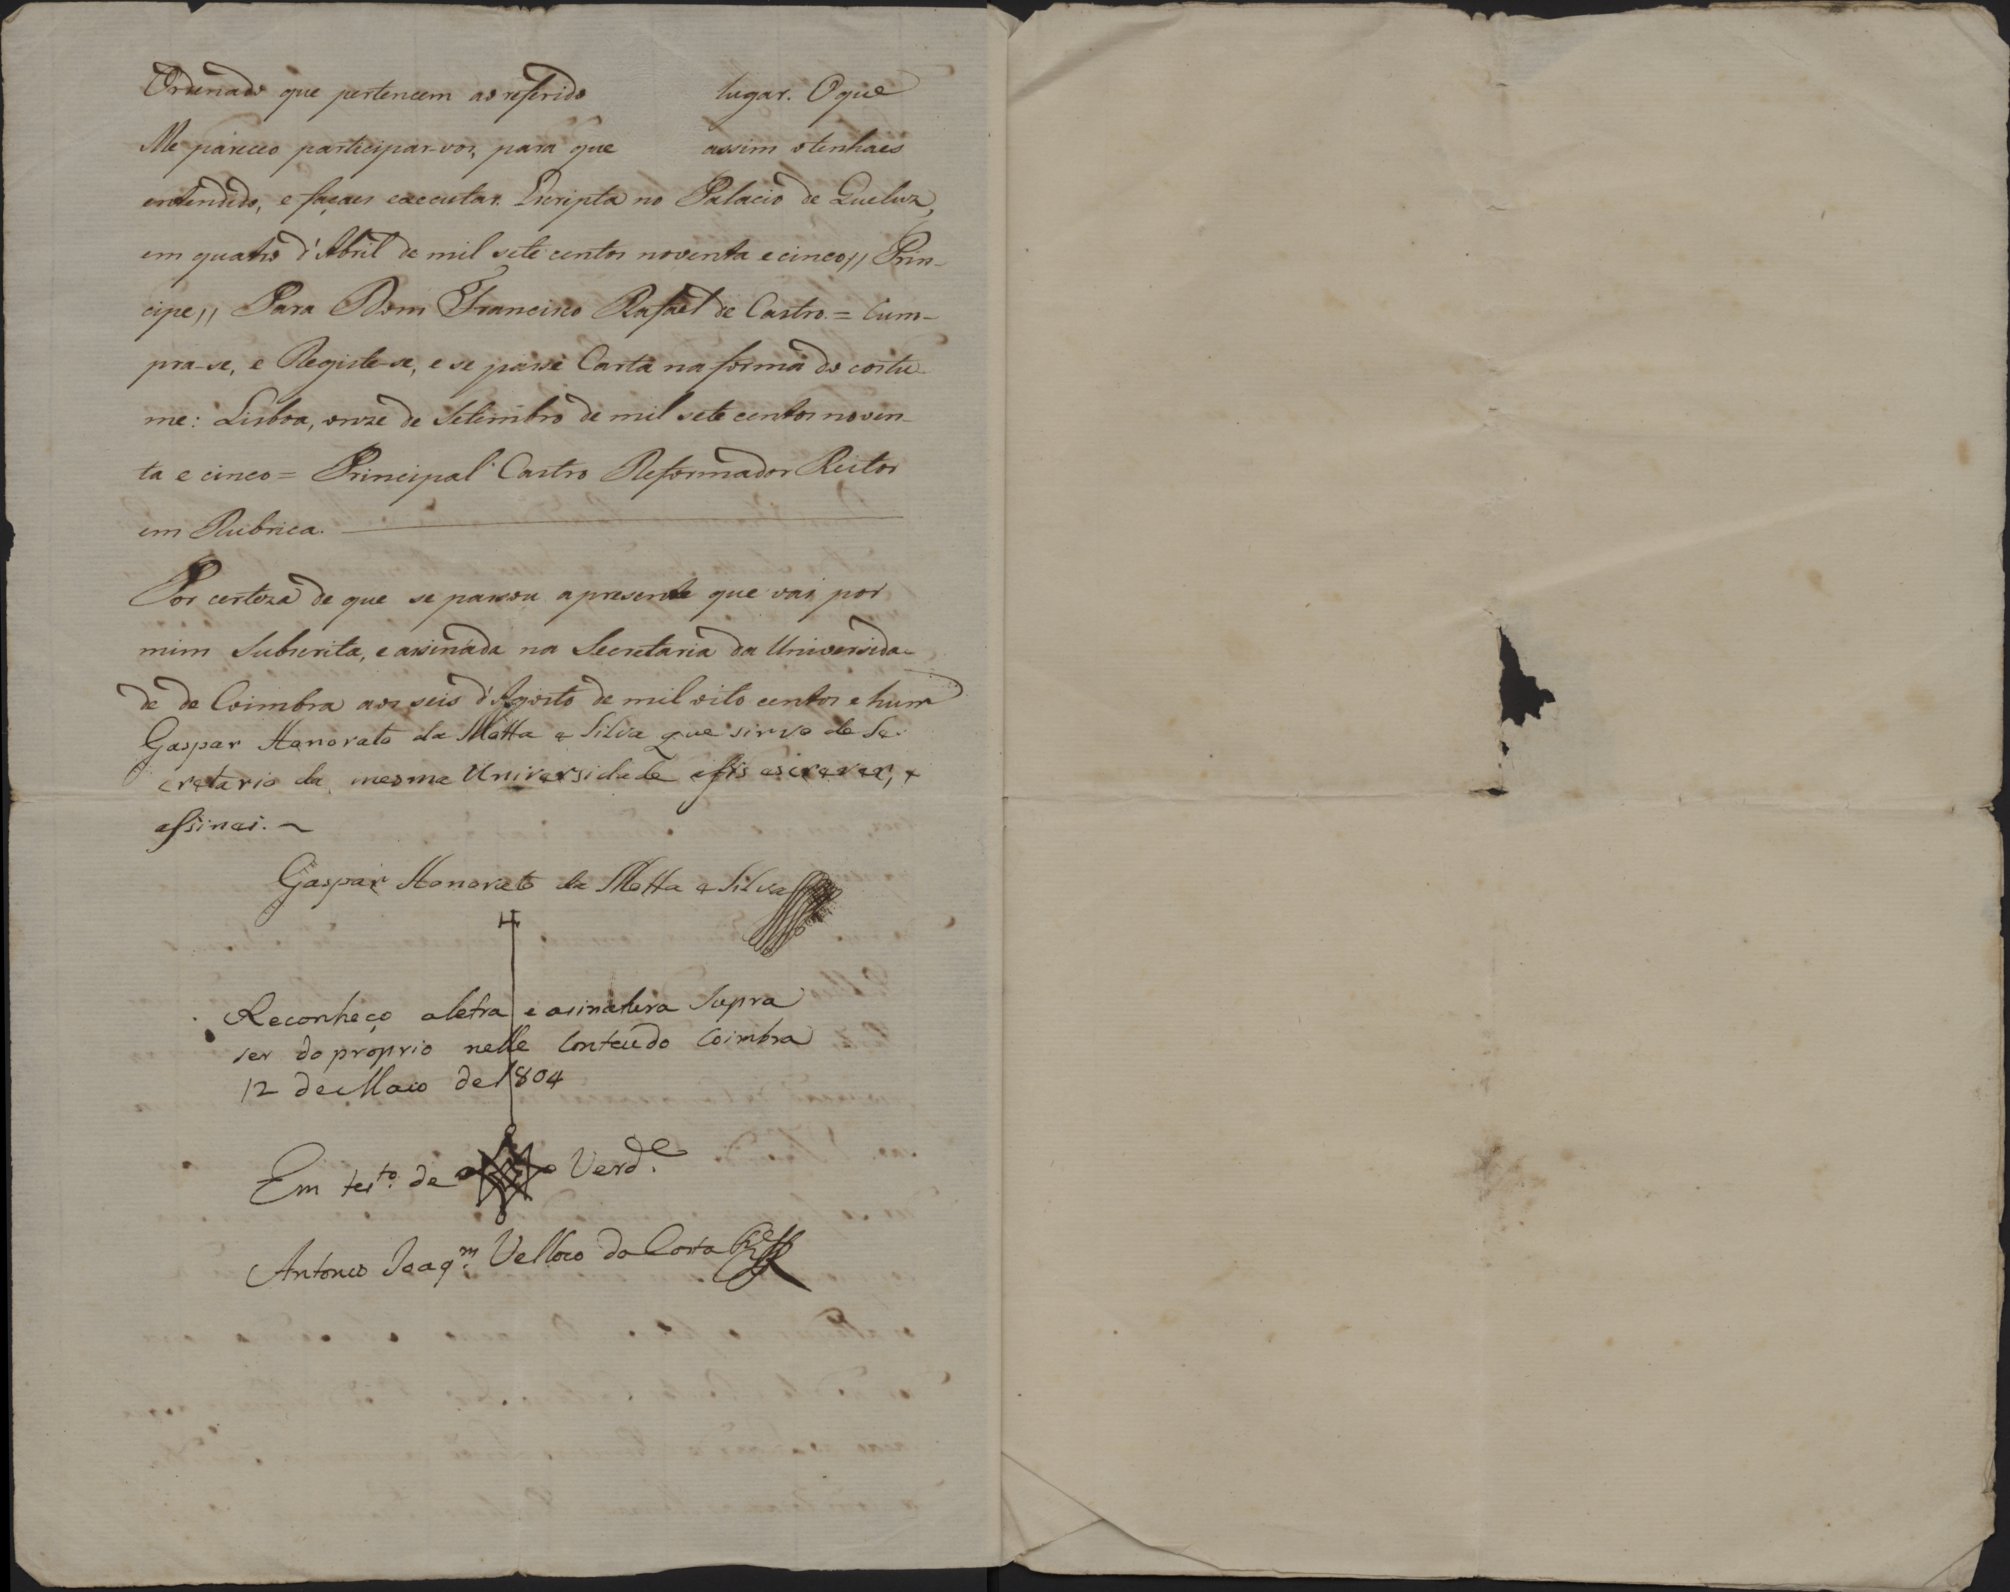 Ordenado que pertencem ao referido lugar. O que
Me pareceo participar-vos, para que assim o tenhaes
entendido, e façaes executar. Escripta no Palacio de Queluz,
em quatro d'Abril de mil sete centos noventa e cinco,, Prin-
cipe,, Para Dom Francisco Rafael de Castro. = Cum-
pra-se, e Registe-se, e se passe Carta na forma do costu-
me: Lisboa, onze de Setembro de mil sete centos noven-
ta e cinco = Principal Castro Reformador Reitor
em Rubrica.
Por certeza de que se passou a presente que vai por
mim Subscrita, e assinada na Secretaria da Universida-
de de Coimbra aos seis d'Agosto de mil oito centos e hum
Gaspar Honorato da Motta e Silva que sirvo de Se-
cretario da mesma Universidade o fis escrever, e
assinei.
Gaspar Honorato da Motta e Silva
Reconheço a letra e asinatura Supra
ser do proprio nelle Conteudo Coimbra
12 de Maio de 1804
Em tes.to de Verd.e
Antonio Joaq.m Velloso da Costa